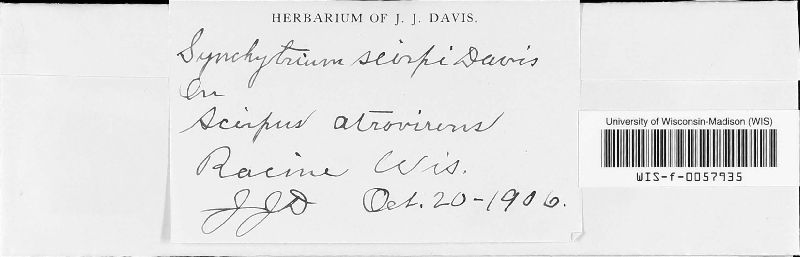 HERBARIUM OF J. J. DAVIS.
Synchytrium scirpi Davis
On
Scirpus atrovirens
Racine Wis.
JJD Oct. 20-1906.
University of Wisconsin-Madison (WIS)
WIS-f-0057935